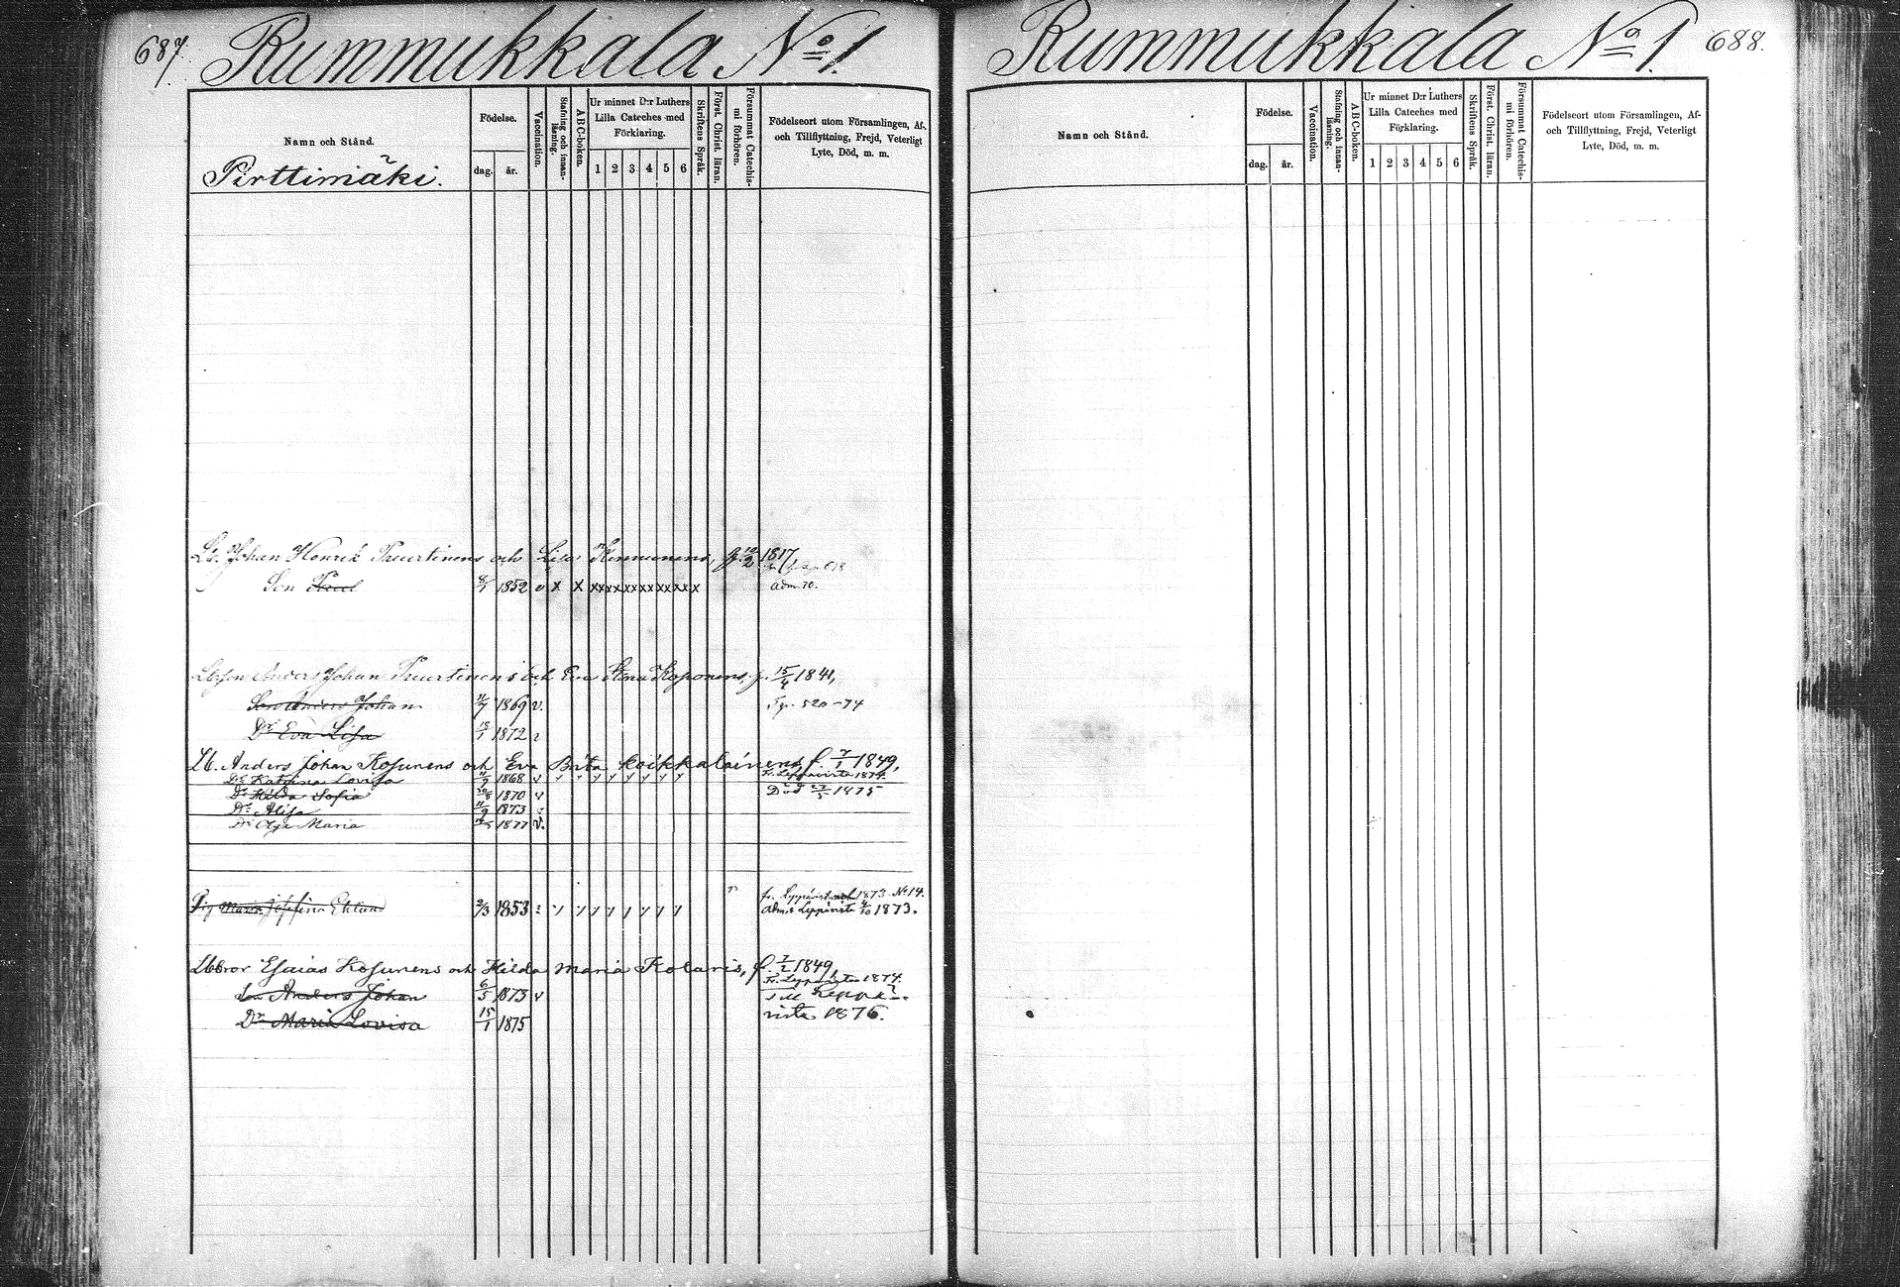 687.
Rummukkala No 1.
Namn och Stånd.
Födelse.
dag.
år.
Vaccination.
Stafning och innan-läsning.
ABC-boken.
Ur minnet D:r Luthers
Lilla Cateches med
Förklaring.
1 2 3 4 5 6
Skriftens Språk.
Först. Christ. läran.
Försummat Catechis-
mi förhören.
Födelseort utom Församlingen, Af-
och Tillflyttning, Frejd, Veterligt
Lyte, Död, m. m.
Pirttimäki.
Johan Henrik och Lisa Kinnunens, 1817
Son 1852 v x x xx xx xx xx xx xx x adm. 70.
Anders Johan och Eva Stina Koponens, f. 15/4 1841,
Son Anders Johan 1869 v.
Dr Eva Lisa 1872
Lb. Anders Johan Kosunens och Eva Brita Koikkalainens f. 1849,
Dr Katrina Lovisa 1868 v Fr. Leppävirta 1874.
Dr Hilda Sofia 1870 v Död 1875
Dr Alisa 1873
Dr Olga Maria 1877 v.
Pig Maria Josefina Eklund 2/3 1853 fr. 1873 No 14.
Leppävirta 1873.
Lbbror Esaias Kosunens och Hilda Maria Kolaris, f. 1849,
Fr. Leppävirta 1874.
Son Anders Johan 6/5 1873 v till Leppä-
Dr Maria Lovisa 15/1 1875 virta 1876.
Rummukkala No 1.
688.
Namn och Stånd.
Födelse.
dag.
år.
Vaccination.
Stafning och innan-läsning.
ABC-boken.
Ur minnet D:r Luthers
Lilla Cateches med
Förklaring.
1 2 3 4 5 6
Skriftens Språk.
Först. Christ. läran.
Försummat Catechis-
mi förhören.
Födelseort utom Församlingen, Af-
och Tillflyttning, Frejd, Veterligt
Lyte, Död, m. m.